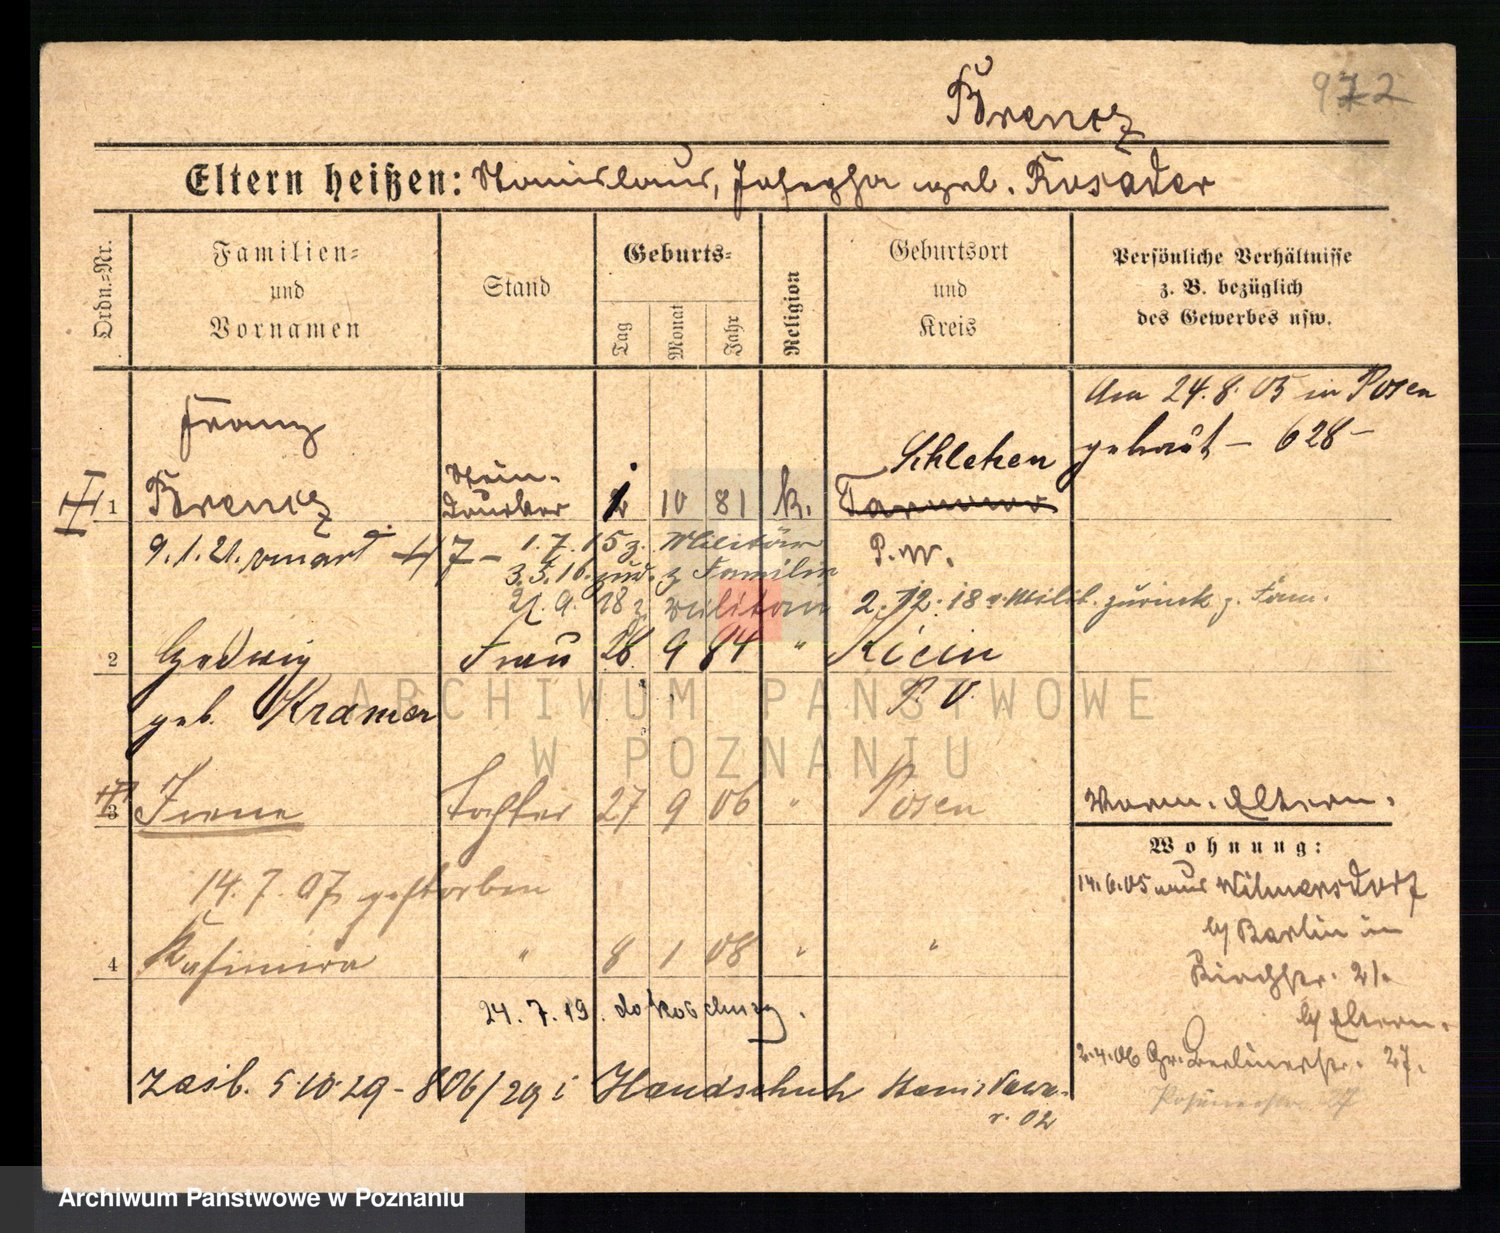 Brentz
972
Eltern heißen: Stanislaus, Josepha geb. Rosäder
Ordn.-Nr.
Familien- und Vornamen
Stand
Geburts-
Tag
Monat
Jahr
Religion
Geburtsort und Kreis
Persönliche Verhältnisse z. B. bezüglich des Gewerbes usw.
Franz
Am 24.8.05 in Posen
Schlehen
getraut – 628 –
1 Brentz
Stein-
drucker
1 10 81 k.
9.1.21.
1.7.15 z. Militär
P.W.
3.5.16 zur. z Familie
21.9.18 z Militär
2.12.18 v. Milit. zurück z. Fam.
2 Hedwig Frau 26 9 84 " Kicin
geb. Kramer
P. O.
ARCHIWUM PAŃSTWOWE
W POZNANIU
3 Irene Tochter 27 9 06 " Posen
Vorm. Eltern.
Wohnung:
14.7.07 gestorben
14.6.05 aus Wilmersdorf
b/ Berlin in
4 Kasimira " 8 1 08 " "
Kirchstr. 21.
b/ Eltern.
24.7.19. do
2.4.06 Gr. Berlinerstr. 27.
zaśl. 5 10 29 - 806/29 i Handschuh Stanisława
r. 02
Archiwum Państwowe w Poznaniu